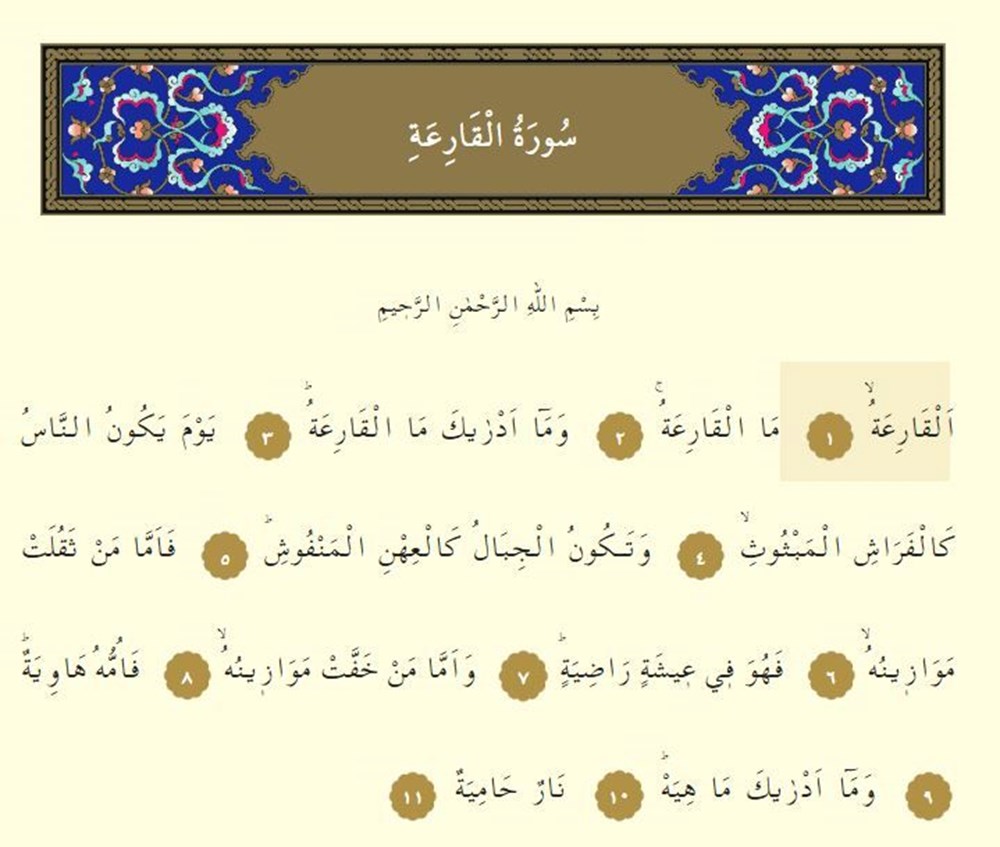 سُورَةُ الْقَارِعَةِ
بِسْمِ اللّٰهِ الرَّحْمٰنِ الرَّح۪يمِ
اَلْقَارِعَةُۙ ١ مَا الْقَارِعَةُۚ ٢ وَمَٓا اَدْرٰيكَ مَا الْقَارِعَةُۜ ٣ يَوْمَ يَكُونُ النَّاسُ
كَالْفَرَاشِ الْمَبْثُوثِۙ ٤ وَتَكُونُ الْجِبَالُ كَالْعِهْنِ الْمَنْفُوشِۜ ٥ فَاَمَّا مَنْ ثَقُلَتْ
مَوَاز۪ينُهُۙ ٦ فَهُوَ ف۪ي ع۪يشَةٍ رَاضِيَةٍۜ ٧ وَاَمَّا مَنْ خَفَّتْ مَوَاز۪ينُهُۙ ٨ فَاُمُّهُ هَاوِيَةٌۜ
٩ وَمَٓا اَدْرٰيكَ مَا هِيَهْۜ ١٠ نَارٌ حَامِيَةٌ ١١